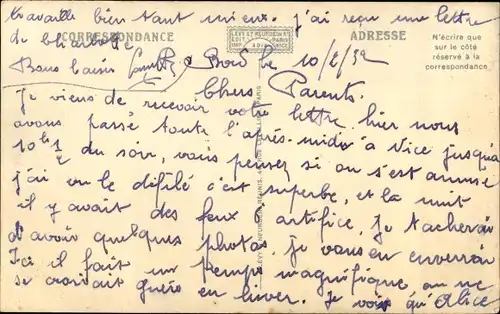 travaille bien tant mieux. j'ai reçu une lettre
de Charlotte
CORRESPONDANCE
LEVY ET NEURDEIN RÉUNIS
ADRESSE
N'écrire que
sur le côté
réservé à la
correspondance
Bons baisers
Bord le 10/2/32
Chers Parents.
Je viens de recevoir votre lettre. hier nous
avons passé toute l'après-midi à Nice jusqu'à
10h½ du soir, vous pensez si on s'est amusé
j'ai vu le défilé c'est superbe, et la nuit
il y avait des feux d'artifice, je tacherai
d'avoir quelques photos, je vous en enverrai
Ici il fait un temps magnifique on ne
se croirait guère en hiver. Je vois qu'Alice